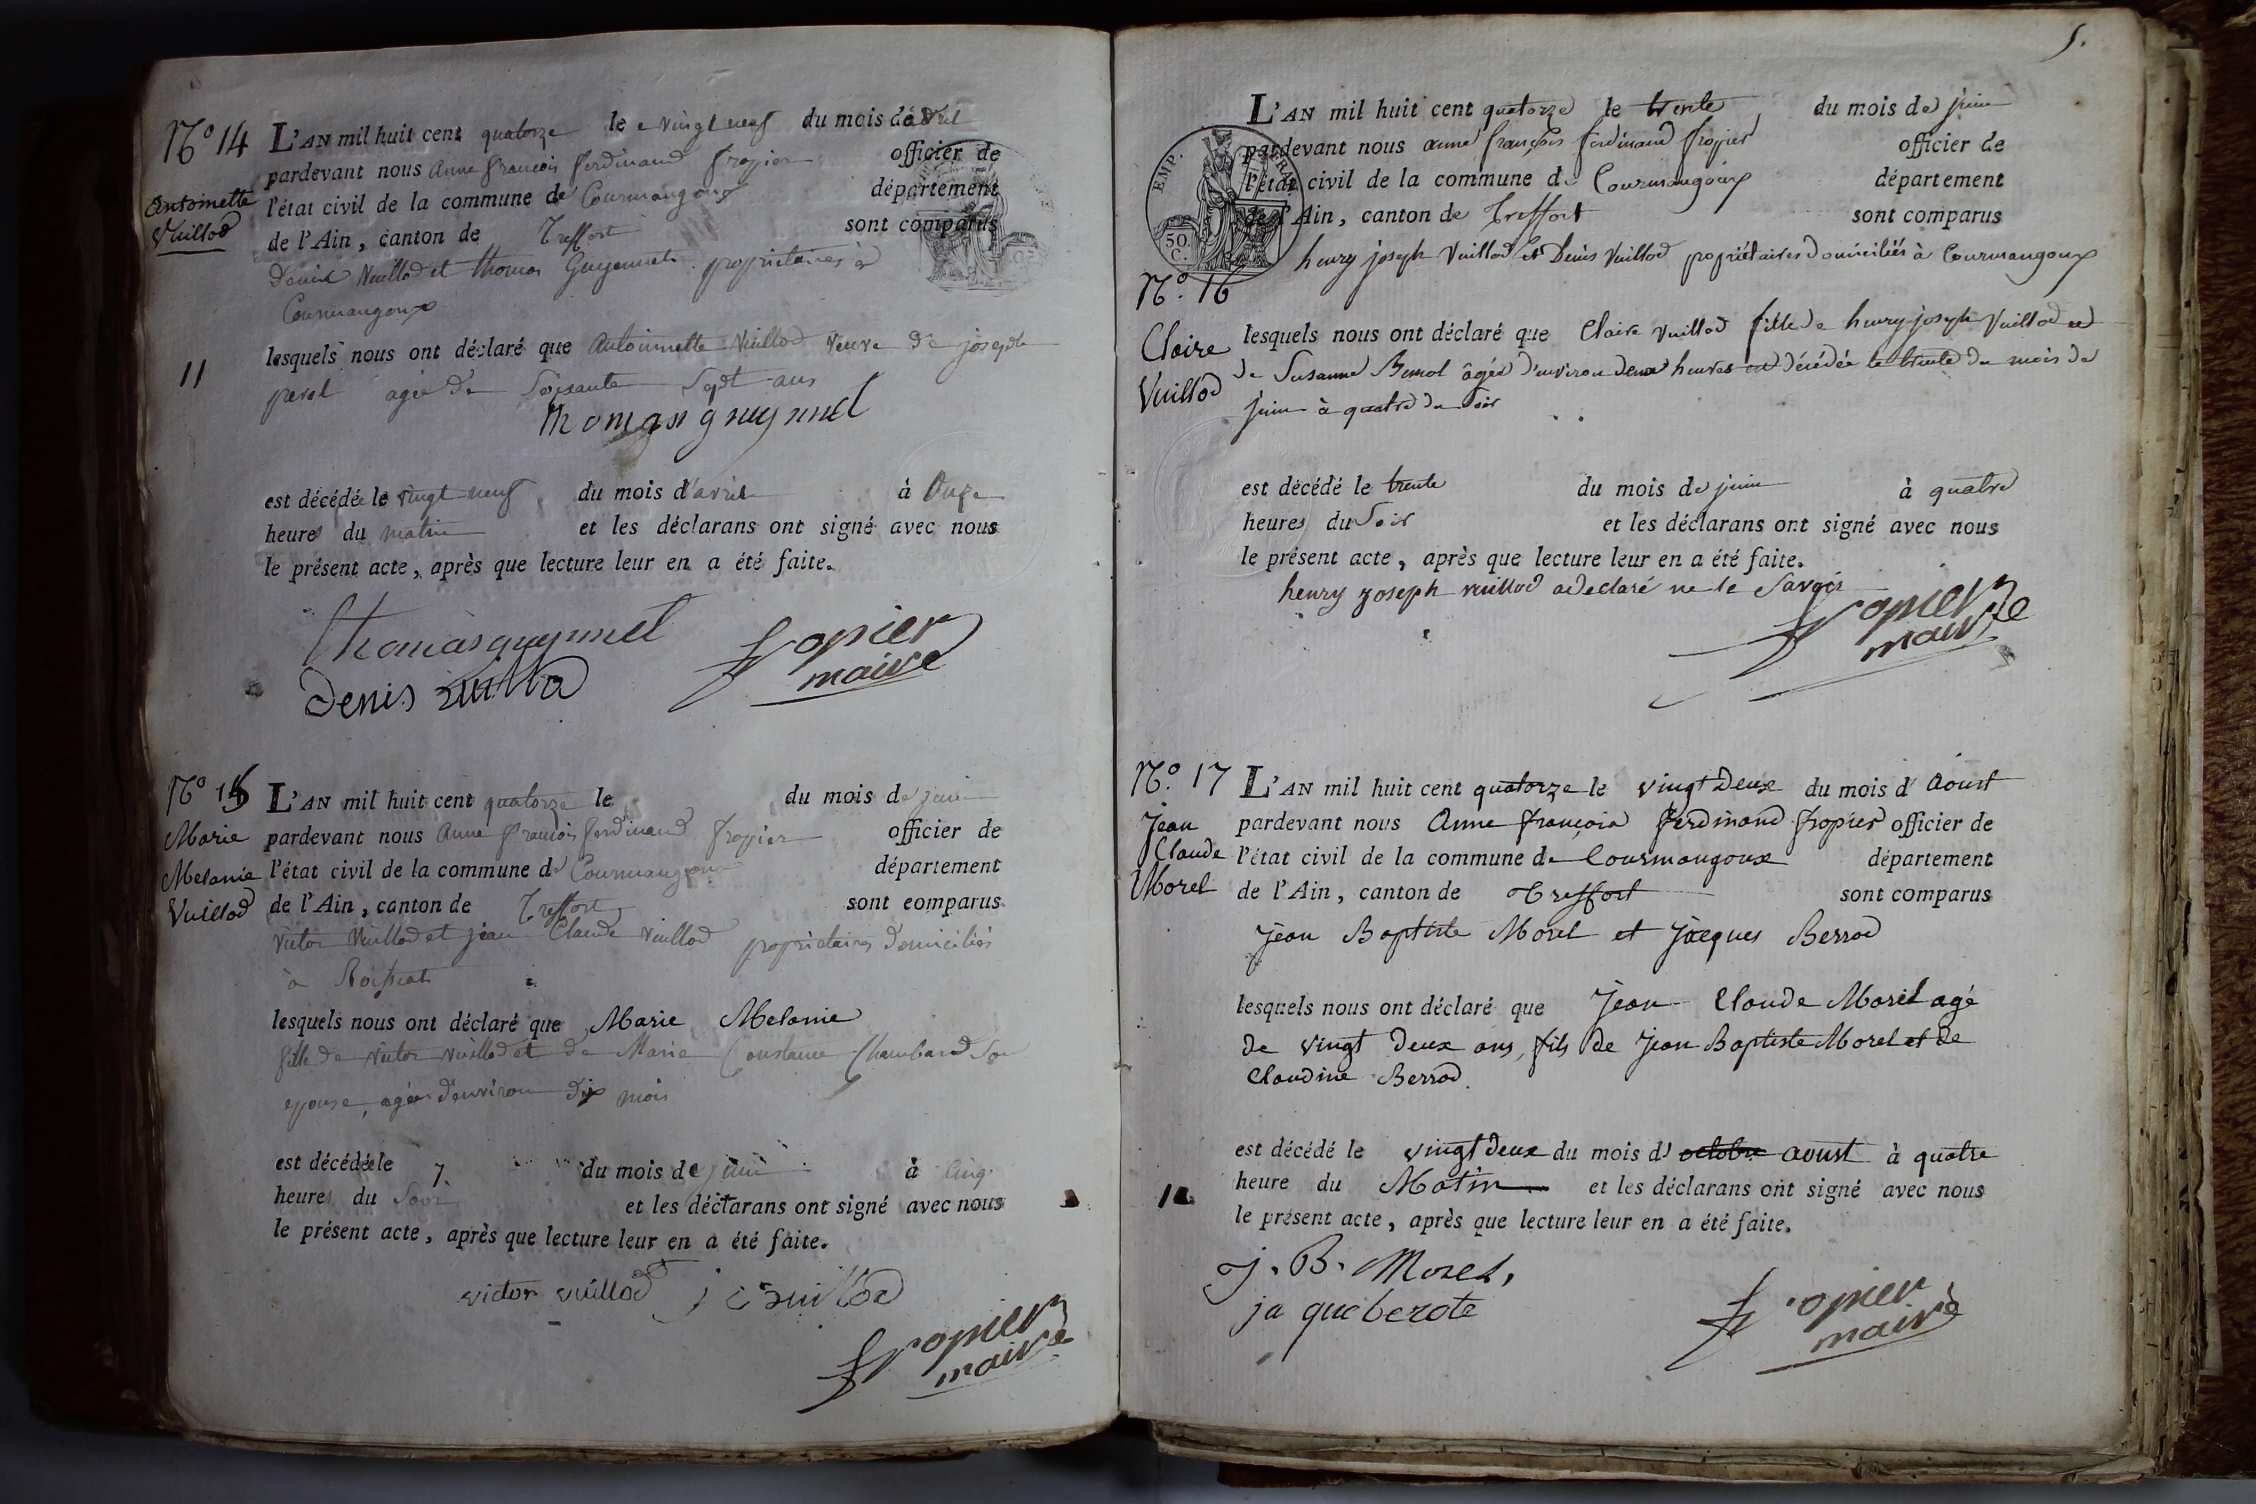 N.º 14
Antoinette
Vuillod
11
L'AN mil huit cent quatorze le vingt neuf du mois d'avril
pardevant nous Anne françois ferdinand fropier officier de
l'état civil de la commune de Courmangoux département
de l'Ain, canton de Treffort sont comparus
Denis Vuillod et thomas Guyennet propriétaires à
Courmangoux
lesquels nous ont déclaré que Antoinette Vuillod veuve de joseph
agée de Soixante Sept ans
thomas guynnet
est décédée le vingt neuf du mois d'avril à Onze
heures du matin et les déclarans ont signé avec nous
le présent acte, après que lecture leur en a été faite.
thomas guynnet
fropier
Denis
maire
N.º 15
Marie
Melanie
Vuillod
L'AN mil huit cent quatorze le du mois de juin
pardevant nous Anne françois ferdinand fropier officier de
l'état civil de la commune de Courmangoux département
de l'Ain, canton de Treffort sont comparus
victor Vuillod et jean Claude vuillod propriétaires domiciliés
à Roissiat
lesquels nous ont déclaré que Marie Melanie
fille de victor vuillod et de Marie Constance Chambard Son
epouse, agée d'environ dix mois
est décédée le 7. du mois de juin à cinq
heures du Soir et les déclarans ont signé avec nous
le présent acte, après que lecture leur en a été faite.
victor vuillod j c vuillod
fropier
maire
5.
L'AN mil huit cent quatorze le trente du mois de juin
pardevant nous anne françois ferdinand fropier officier de
l'état civil de la commune de Courmangoux département
de l'Ain, canton de treffort sont comparus
EMP.
50.
C.
henry joseph Vuillod et Denis Vuillod propriétaires domiciliés à Courmangoux
N.º 16
Claire
Vuillod
lesquels nous ont déclaré que Claire vuillod fille de henry joseph Vuillod et
de Susanne âgée d'environ deux heures est décédée le trente du mois de
juin à quatre du Soir
est décédé le trente du mois de juin à quatre
heures du Soir et les déclarans ont signé avec nous
le présent acte, après que lecture leur en a été faite.
henry joseph vuillod a declaré ne le Savoir
fropier
maire
N.º 17
Jean
Claude
Morel
L'AN mil huit cent quatorze le vingt Deux du mois d'Aoust
pardevant nous Anne françois ferdinand fropier officier de
l'état civil de la commune de Courmangoux département
de l'Ain, canton de Treffort sont comparus
Jean Baptiste Morel et Jacques Berrod
lesquels nous ont déclaré que Jean Claude Morel agé
de vingt deux ans, fils de Jean Baptiste Morel et de
Claudine Berrod.
est décédé le vingt deux du mois d' octobre aoust à quatre
heure du Matin et les déclarans ont signé avec nous
le présent acte, après que lecture leur en a été faite.
j. B. Morel,
ja que berote
fropier
maire